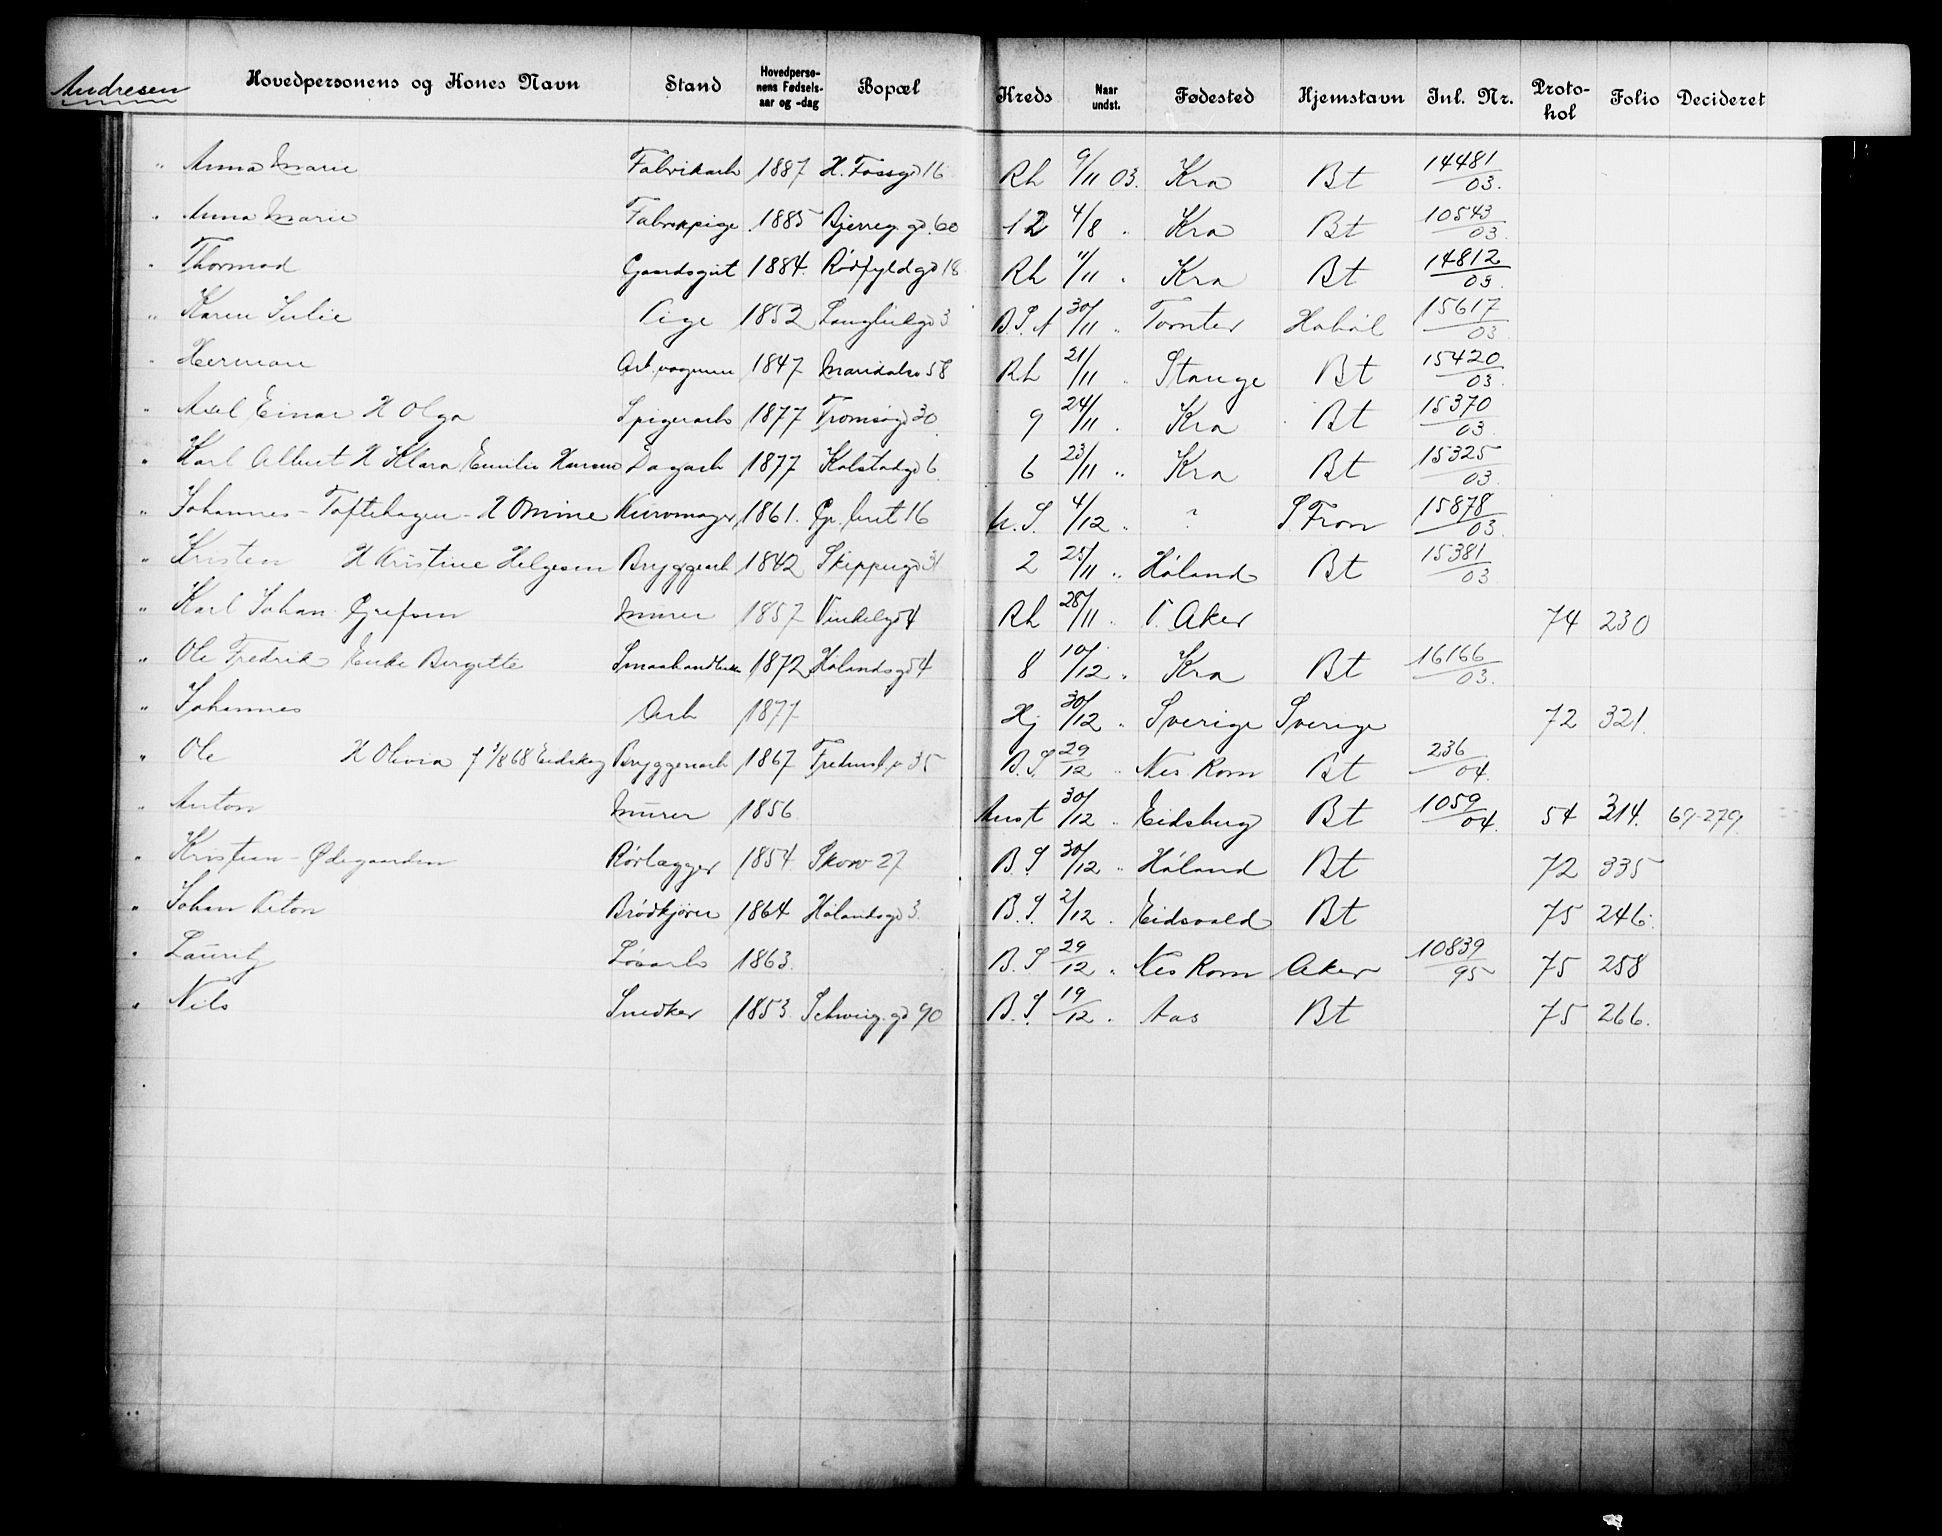 Andresen Hovedpersonens og Kones Navn Stand Hovedpersonens Fødselsaar og -dag Bopæl Kreds Naar undst. Fødested Hjemstavn Inl. Nr. Protokol Folio Decideret
" Anna Marie Fabrikarb 1887 H. Fossgd 16 Rh 9/11 03. Kra Bt 14481/03.
" Anna Marie Fabrikpige 1885 Bjerreg.gd. 60 12 4/8 " Kra Bt 10543/03.
" Thormod Gaardsgut 1884. Rødfyldgd 18 Rh 11/11 " Kra Bt 14812/03.
" Karen Julie Pige 1852 Langlikgd 3 B.S.A 30/11 " Tomter Hobøl 15617/03
" Herman Arb.vognm 1847 Maridalsv 58 Rh 21/11 " Stange Bt 15420/03.
" Axel Einar H Olga Spigerarb 1877 Tromsøgd 30 9 24/11 " Kra Bt 15370/03.
" Karl Albert H Klara Emilie Hansen Dagarb 1877 Kolstadgd 6 6 23/11 " Kra Bt 15325/03.
" Johannes - Toftehagen - H Omine Kurvmager 1861. Gr. leret 16 U.S. 4/12 " ? S. Fron 15878/03.
" Kristen H Kristine Helgesen Bryggearb 1842 Skippergd 31 2 25/11 " Høland Bt 15381/03
" Karl Johan Grefsen Murer 1857 Vinkelgd 4 Rh 28/11 " V. Aker 74 230
" Ole Fredrik Enke Bergitte Smaahandler 1872 Hølandsgd 4 8 10/12 " Kra Bt 16166/03.
" Johannes Arb 1877 Hj 30/12 " Sverige Sverige 72 321.
" Ole H Olivia f 1/8 68 Eidskog Bryggerarb 1867 35 B.S 29/12 " Nes Rom Bt 236/04.
" Anton Murer 1856 Anst 30/12 " Eidsberg Bt 1059/04. 54 314. 69-279.
" Kristian - Ødegaarden Rørlægger 1854. Skovv 27 B.S 30/12 " Høland Bt 72 335
" Johan Anton Brødkjører 1864 Hølandsgd 3. B.S. 2/12 " Eidsvold Bt 75 246.
" Lauritz Løsarb 1863. B.S 29/12 " Nes Rom Aker 10839/95 75 258
" Nils Snedker 1853. Schweig.gd 90 B.S. 19/12 " Aas Bt 75 266.